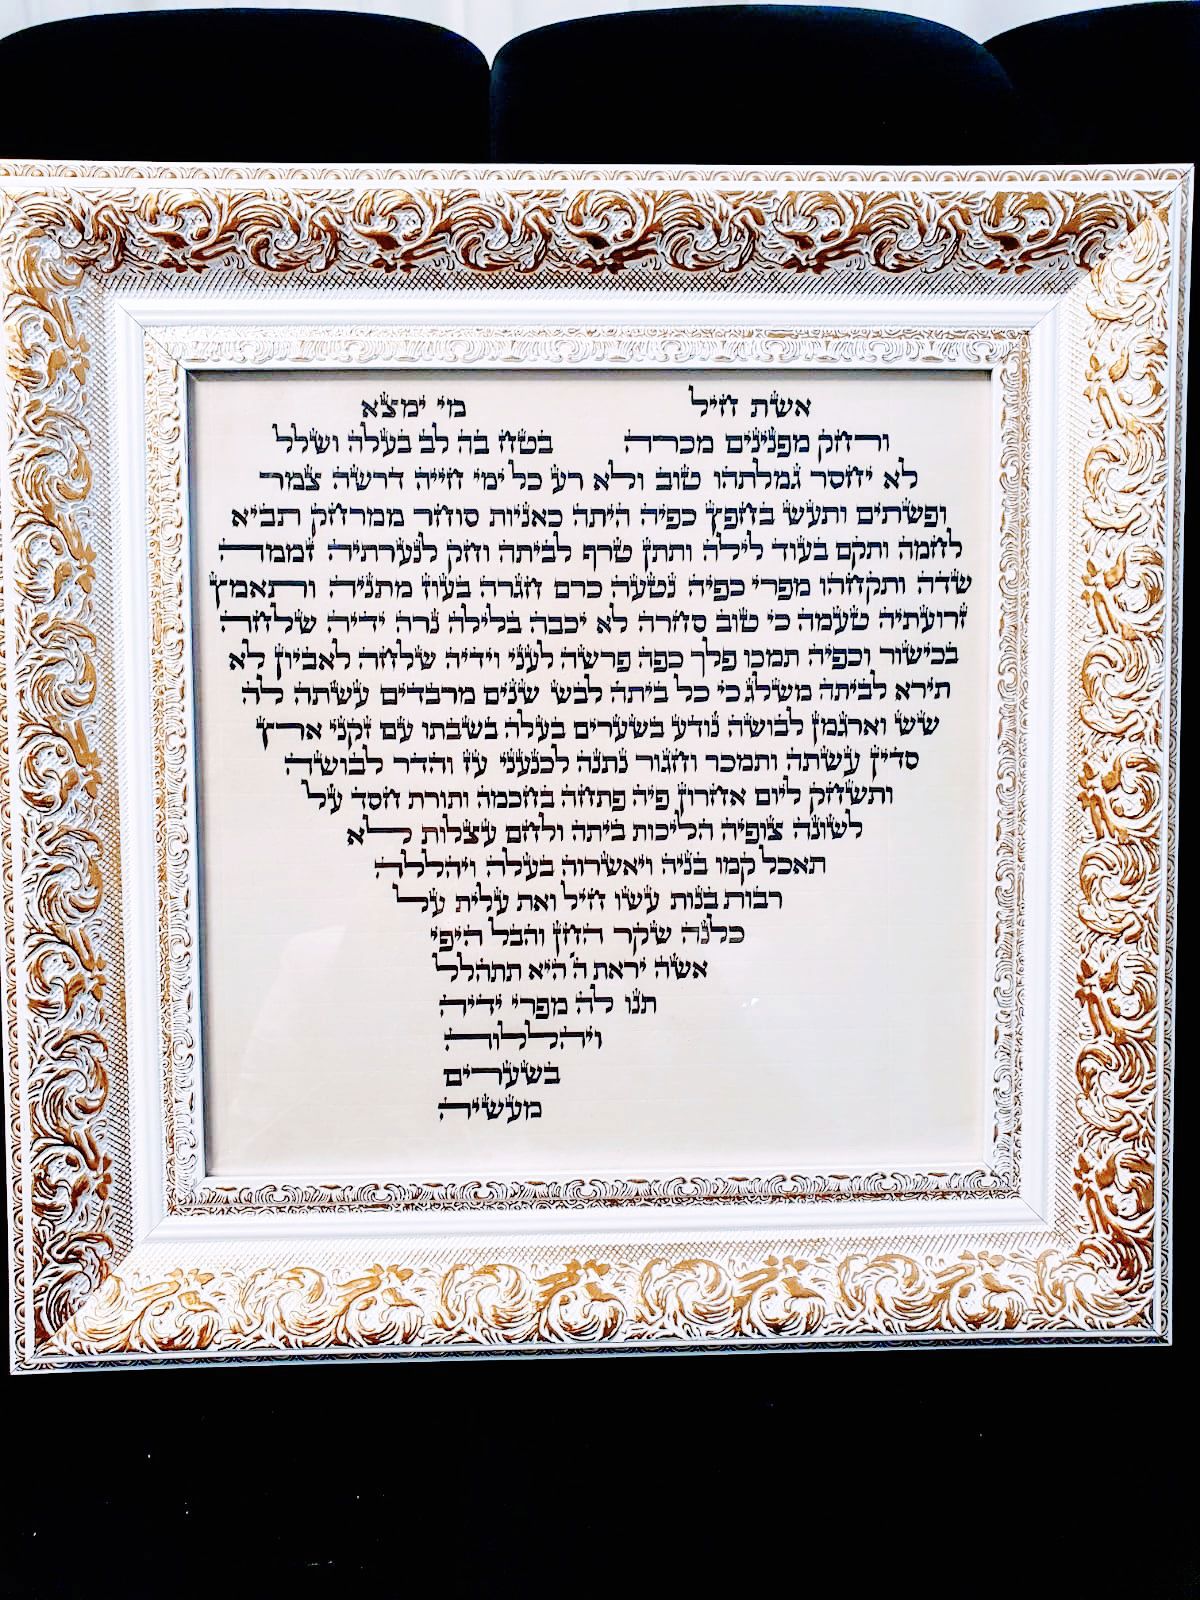 אשת חיל מי ימצא
ורחק מפנינים מכרה בטח בה לב בעלה ושלל
לא יחסר גמלתהו טוב ולא רע כל ימי חייה דרשה צמר
ופשתים ותעש בחפץ כפיה היתה כאניות סוחר ממרחק תביא
לחמה ותקם בעוד לילה ותתן טרף לביתה וחק לנערתיה זממה
שדה ותקחהו מפרי כפיה נטעה כרם חגרה בעוז מתניה ותאמץ
זרועתיה טעמה כי טוב סחרה לא יכבה בלילה נרה ידיה שלחה
בכישור וכפיה תמכו פלך כפה פרשה לעני וידיה שלחה לאביון לא
תירא לביתה משלג כי כל ביתה לבש שנים מרבדים עשתה לה
שש וארגמן לבושה נודע בשערים בעלה בשבתו עם זקני ארץ
סדין עשתה ותמכר וחגור נתנה לכנעני עז והדר לבושה
ותשחק ליום אחרון פיה פתחה בחכמה ותורת חסד על
לשונה צופיה הליכות ביתה ולחם עצלות לא
תאכל קמו בניה ויאשרוה בעלה ויהללה
רבות בנות עשו חיל ואת עלית על
כלנה שקר החן והבל היפי
אשה יראת ה' היא תתהלל
תנו לה מפרי ידיה
ויהללוה
בשערים
מעשיה